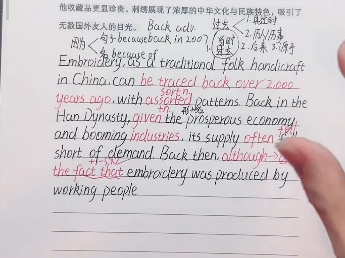 他收藏品更显珍贵。刺绣展现了浓厚的中华文化与民族特色,吸引了
无数国外友人的目光。
Back adv
过去
2. 历史
句子 because back in 2007
because of
Embroidery, as a traditional folk handicraft
in China, can be traced back over 2,000
years ago, with assorted patterns. Back in the
sort+n
+n
Han Dynasty, given the prosperous economy
and booming industries, its supply often
short of demand. Back then, although→
+j-s.v.
the fact that embroidery was produced by
working people